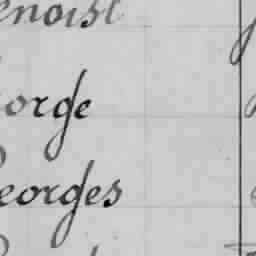 enoist
orge
eorges